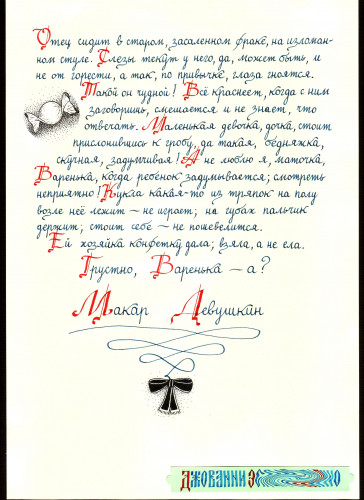 Отец сидит в старом, засаленном фраке, на изломан-
ном стуле. Слезы текут у него, да, может быть, и
не от горести, а так, по привычке, глаза гноятся.
Такой он чудной! Всё краснеет, когда с ним
заговоришь, смешается и не знает, что
отвечать. Маленькая девочка, дочка, стоит
прислонившись к гробу, да такая, бедняжка,
скучная, задумчивая! А не люблю я, маточка,
Варенька, когда ребёнок задумывается; смотреть
неприятно! Кукла какая-то из тряпок на полу
возле неё лежит – не играет; на губах пальчик
держит; стоит себе – не пошевелится.
Ей хозяйка конфетку дала; взяла, а не ела.
Грустно, Варенька – а?
Макар Девушкин
Джованни